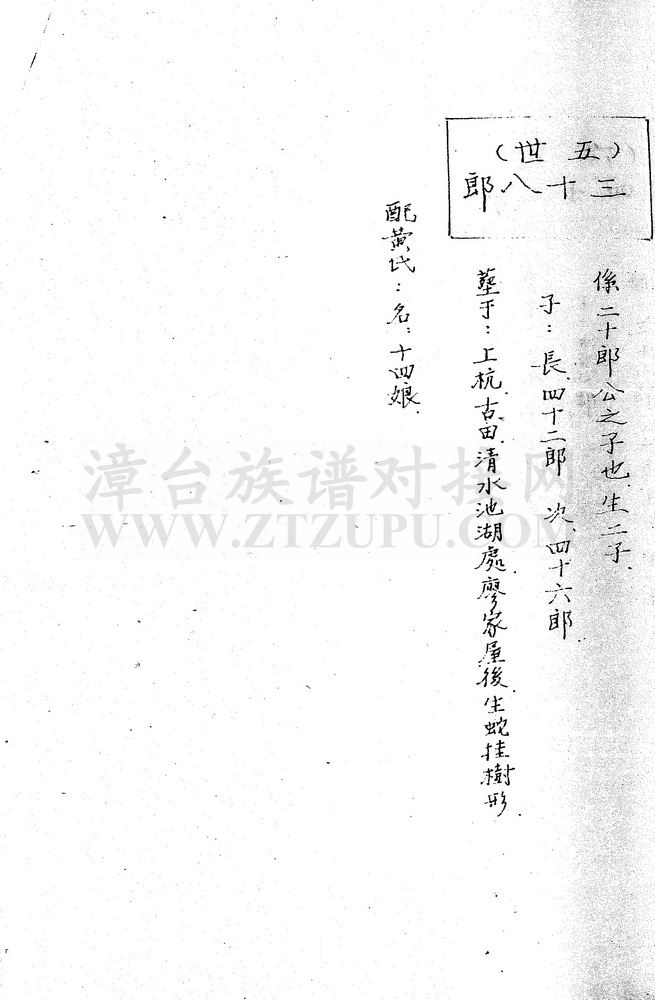 （五世）
三十八郎
係二十郎公之子也.生二子.
子：長.四十二郎 次.四十六郎
塟于：上杭.古田.清水池湖處.廖家屋後.生蛇挂樹形.
配黄氏：名：十四娘.
漳台族谱对接网
WWW.ZTZUPU.COM